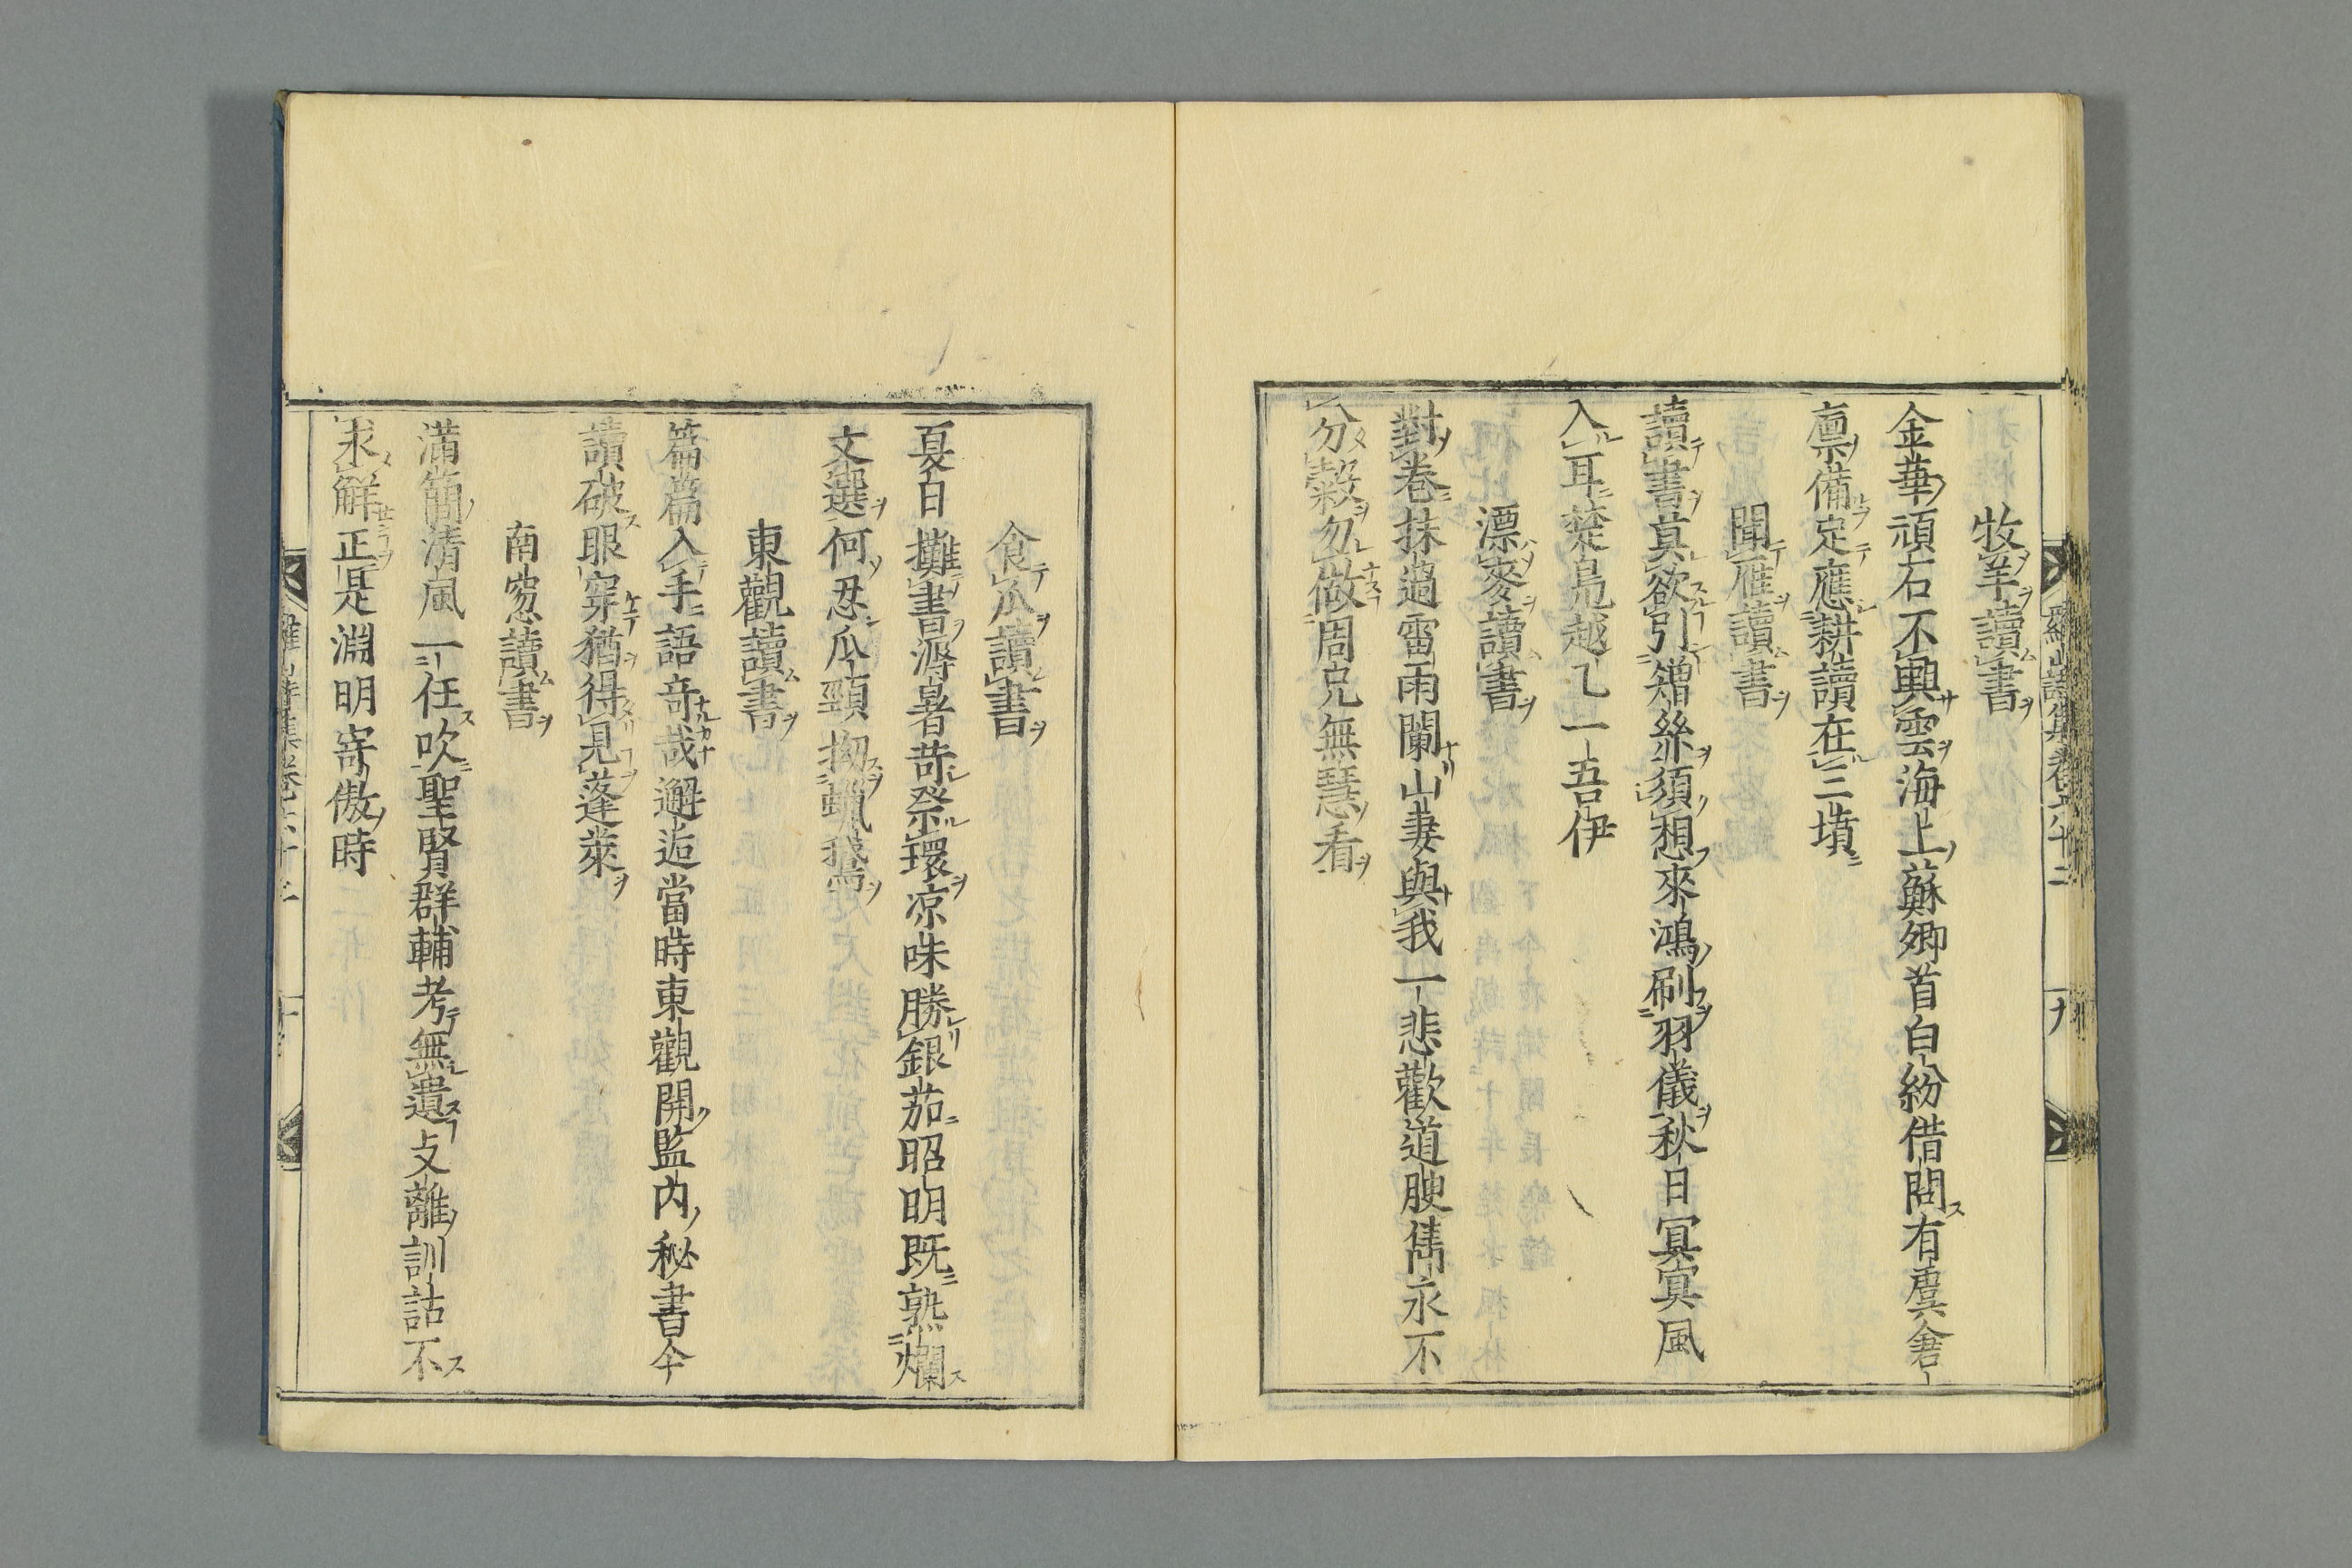 羅山詩集卷六十二
九
牧羊讀書
金華頑石不輿雲海上蘇卿首白紛借問有虞倉
廪備定應耕讀在三墳
聞雁讀書
讀書莫欲引矰絲須想來鴻刷羽儀秋日冥冥風
入耳楚鳧越乙一吾伊
漂麥讀書
對卷抹過雷雨闌山妻與我一悲歡道腴雋永不
分榖勿做周兄無慧看
食瓜讀書
夏日攤書溽暑苛祭環凉味勝銀茄昭明既熟爛
文選何忍瓜頸拗蠟鵞
東觀讀書
篇篇入手語奇哉邂逅當時東觀開監内秘書今
讀破眼穿猶得見蓬萊
南窓讀書
满簡清風一任吹聖賢群輔考無遺支離訓詁不
求解正是淵明寄傲時